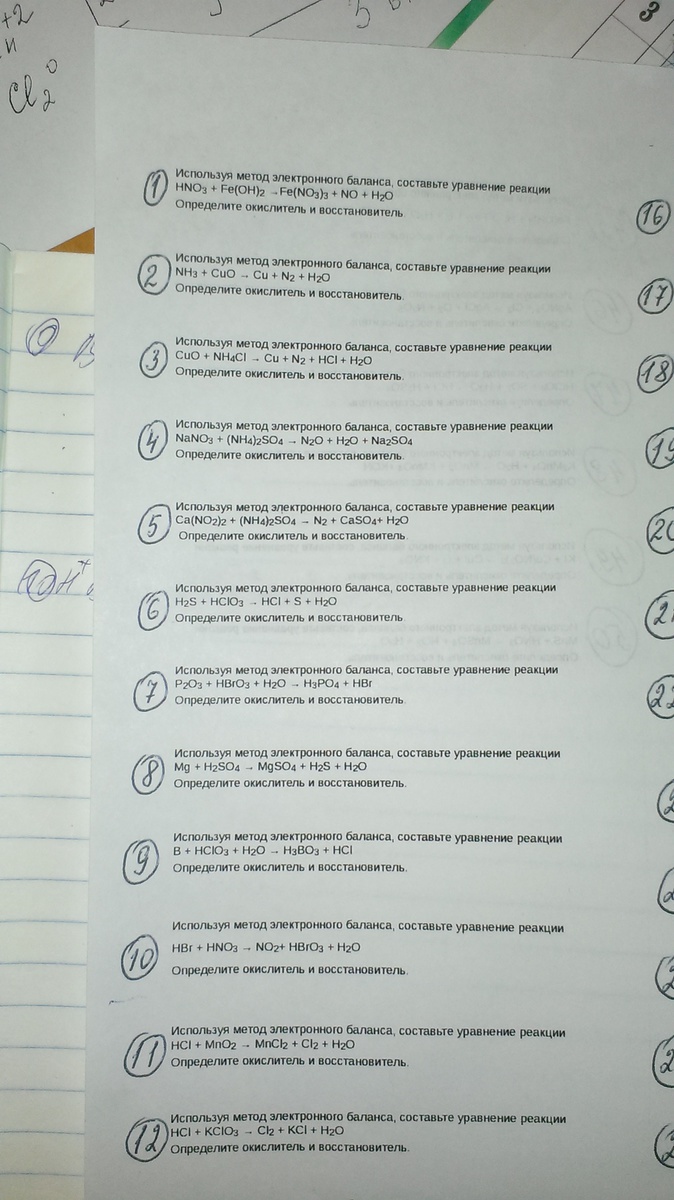 +2
и
Cl₂⁰
3
1
Используя метод электронного баланса, составьте уравнение реакции
HNO₃ + Fe(OH)₂ →Fe(NO₃)₃ + NO + H₂O
Определите окислитель и восстановитель
16
2
Используя метод электронного баланса, составьте уравнение реакции
NH₃ + CuO → Cu + N₂ + H₂O
Определите окислитель и восстановитель.
17
3
Используя метод электронного баланса, составьте уравнение реакции
CuO + NH₄Cl → Cu + N₂ + HCl + H₂O
Определите окислитель и восстановитель.
18
4
Используя метод электронного баланса, составьте уравнение реакции
NaNO₃ + (NH₄)₂SO₄ → N₂O + H₂O + Na₂SO₄
Определите окислитель и восстановитель.
19
5
Используя метод электронного баланса, составьте уравнение реакции
Ca(NO₂)₂ + (NH₄)₂SO₄ → N₂ + CaSO₄+ H₂O
Определите окислитель и восстановитель.
6
Используя метод электронного баланса, составьте уравнение реакции
H₂S + HClO₃ → HCl + S + H₂O
Определите окислитель и восстановитель
7
Используя метод электронного баланса, составьте уравнение реакции
P₂O₃ + HBrO₃ + H₂O → H₃PO₄ + HBr
Определите окислитель и восстановитель.
22
8
Используя метод электронного баланса, составьте уравнение реакции
Mg + H₂SO₄ → MgSO₄ + H₂S + H₂O
Определите окислитель и восстановитель.
9
Используя метод электронного баланса, составьте уравнение реакции
B + HClO₃ + H₂O → H₃BO₃ + HCl
Определите окислитель и восстановитель.
10
Используя метод электронного баланса, составьте уравнение реакции
HBr + HNO₃ → NO₂+ HBrO₃ + H₂O
Определите окислитель и восстановитель.
11
Используя метод электронного баланса, составьте уравнение реакции
HCl + MnO₂ → MnCl₂ + Cl₂ + H₂O
Определите окислитель и восстановитель.
12
Используя метод электронного баланса, составьте уравнение реакции
HCl + KClO₃ → Cl₂ + KCl + H₂O
Определите окислитель и восстановитель.